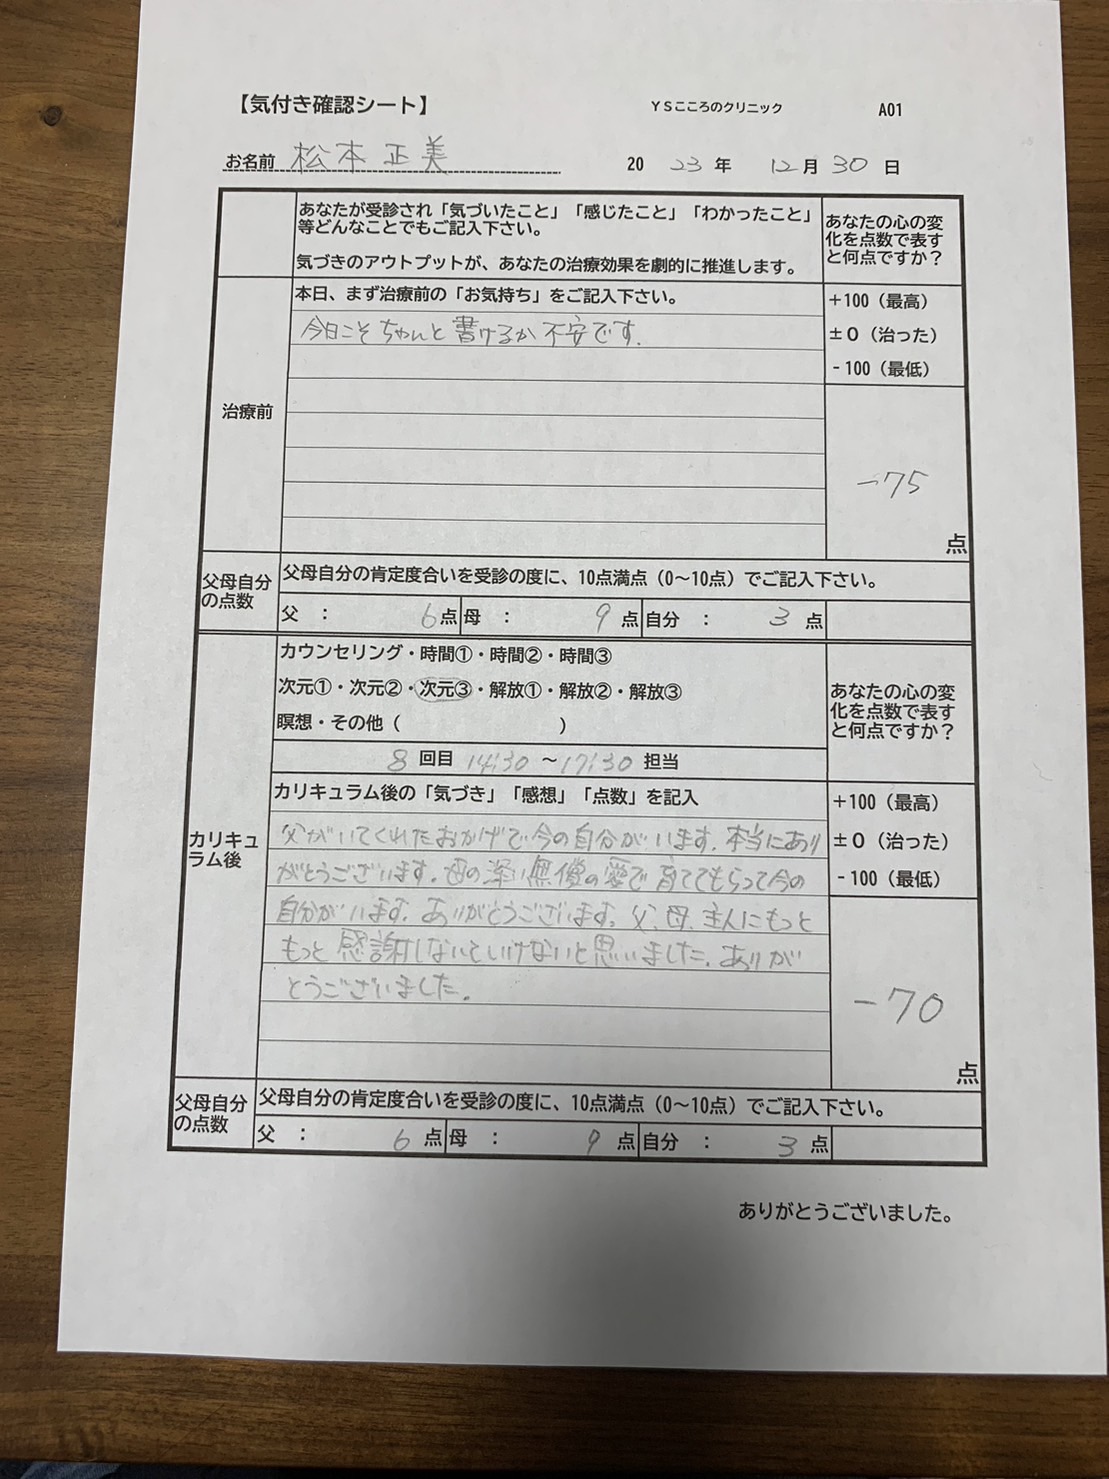 【気付き確認シート】 YSこころのクリニック A01
お名前 松本正美 2023年 12月30日
あなたが受診され「気づいたこと」「感じたこと」「わかったこと」
等どんなことでもご記入下さい。
気づきのアウトプットが、あなたの治療効果を劇的に推進します。
あなたの心の変
化を点数で表す
と何点ですか？
治療前
本日、まず治療前の「お気持ち」をご記入下さい。
今日こそちゃんと書けるか不安です.
+100（最高）
±0（治った）
-100（最低）
-75
点
父母自分
の点数
父母自分の肯定度合いを受診の度に、10点満点（0～10点）でご記入下さい。
父 ： 6点 母 ： 9点 自分 ： 3点
カリキュ
ラム後
カウンセリング・時間①・時間②・時間③
次元①・次元②・次元③・解放①・解放②・解放③
瞑想・その他（ ）
8回目 14:30 ～17:30 担当
あなたの心の変
化を点数で表す
と何点ですか？
カリキュラム後の「気づき」「感想」「点数」を記入
父がいてくれたおかげで今の自分がいます. 本当にあり
がとうございます. 母の深い無償の愛で育ててもらって今の
自分がいます. ありがとうございます. 父、母、主人にもっと
もっと感謝しないといけないと思いました. ありが
とうございました.
+100（最高）
±0（治った）
-100（最低）
-70
点
父母自分
の点数
父母自分の肯定度合いを受診の度に、10点満点（0～10点）でご記入下さい。
父 ： 6点 母 ： 9点 自分 ： 3点
ありがとうございました。